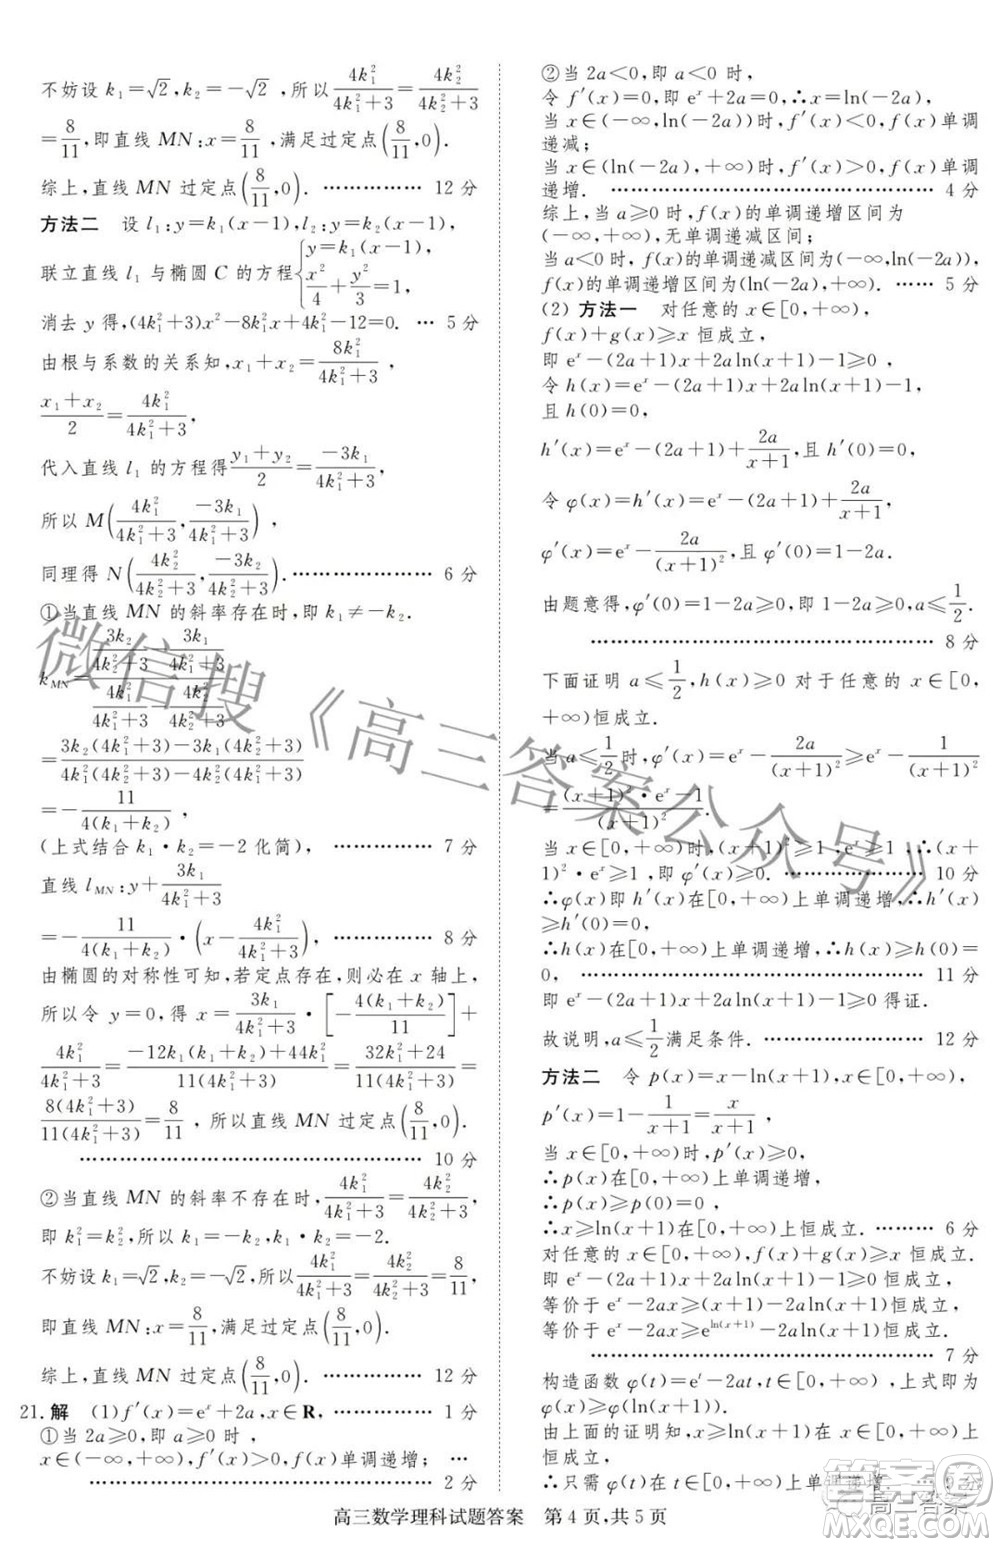 不妨设 k₁=√2,k₂=-√2,所以 4k₁²/(4k₁²+3)=4k₂²/(4k₂²+3)
=8/11,即直线 MN:x=8/11,满足过定点(8/11,0).
综上,直线 MN 过定点(8/11,0). …………… 12 分
方法二 设 l₁:y=k₁(x-1),l₂:y=k₂(x-1),
联立直线 l₁ 与椭圆 C 的方程{y=k₁(x-1), x²/4+y²/3=1,
消去 y 得,(4k₁²+3)x²-8k₁²x+4k₁²-12=0. … 5 分
由根与系数的关系知,x₁+x₂=8k₁²/(4k₁²+3),
(x₁+x₂)/2=4k₁²/(4k₁²+3),
代入直线 l₁ 的方程得(y₁+y₂)/2=-3k₁/(4k₁²+3),
所以 M(4k₁²/(4k₁²+3),-3k₁/(4k₁²+3)),
同理得 N(4k₂²/(4k₂²+3),-3k₂/(4k₂²+3)).………………… 6 分
①当直线 MN 的斜率存在时,即 k₁≠-k₂.
=(3k₂(4k₁²+3)-3k₁(4k₂²+3))/(4k₁²(4k₂²+3)-4k₂²(4k₁²+3))
=-11/(4(k₁+k₂)),
(上式结合 k₁·k₂=-2 化简), …………… 7 分
直线 l_MN:y+3k₁/(4k₁²+3)
=-11/(4(k₁+k₂))·(x-4k₁²/(4k₁²+3)), …………… 8 分
由椭圆的对称性可知,若定点存在,则必在 x 轴上,
所以令 y=0,得 x=3k₁/(4k₁²+3)·[-4(k₁+k₂)/11]+
4k₁²/(4k₁²+3)=(-12k₁(k₁+k₂)+44k₁²)/(11(4k₁²+3))=(32k₁²+24)/(11(4k₁²+3))=
8(4k₁²+3)/(11(4k₁²+3))=8/11,所以直线 MN 过定点(8/11,0).
………………………………………… 10 分
②当直线 MN 的斜率不存在时,4k₁²/(4k₁²+3)=4k₂²/(4k₂²+3),
即 k₁²=k₂²,所以 k₁=-k₂,k₁·k₂=-2.
不妨设 k₁=√2,k₂=-√2,所以4k₁²/(4k₁²+3)=4k₂²/(4k₂²+3)=8/11,
即直线 MN:x=8/11,满足过定点(8/11,0).
综上,直线 MN 过定点(8/11,0). …………… 12 分
21.解 (1)f′(x)=eˣ+2a,x∈R,…………… 1 分
①当 2a≥0,即 a≥0 时,
x∈(-∞,+∞),f′(x)>0,f(x)单调递增; …
………………………………………… 2 分
②当 2a<0,即 a<0 时,
令 f′(x)=0,即 eˣ+2a=0,∴x=ln(-2a),
当 x∈(-∞,ln(-2a))时,f′(x)<0,f(x)单调
递减;
当 x∈(ln(-2a),+∞)时,f′(x)>0,f(x)单调
递增. ……………………………………… 4 分
综上,当 a≥0 时,f(x)的单调递增区间为
(-∞,+∞),无单调递减区间;
当 a<0 时,f(x)的单调递减区间为(-∞,ln(-2a)),
f(x)的单调递增区间为(ln(-2a),+∞). …… 5 分
(2) 方法一 对任意的 x∈[0,+∞),
f(x)+g(x)≥x 恒成立,
即 eˣ-(2a+1)x+2aln(x+1)-1≥0 ,
令 h(x)=eˣ-(2a+1)x+2aln(x+1)-1,
且 h(0)=0,
h′(x)=eˣ-(2a+1)+2a/(x+1),且 h′(0)=0,
令 φ(x)=h′(x)=eˣ-(2a+1)+2a/(x+1),
φ′(x)=eˣ-2a/(x+1)²,且 φ′(0)=1-2a.
由题意得,φ′(0)=1-2a≥0,∴a≤1/2.
………………………………………… 8 分
下面证明 a≤1/2,h(x)≥0 对于任意的 x∈[0,
+∞)恒成立.
当 a≤1/2时,φ′(x)=eˣ-2a/(x+1)²≥eˣ-1/(x+1)²
=((x+1)²·eˣ-1)/(x+1)².
当 x∈[0,+∞)时,(x+1)²≥1,eˣ≥1,∴(x+
1)²·eˣ≥1,∴φ′(x)≥0. ……………… 10 分
∴φ(x)即 h′(x)在[0,+∞)上单调递增,∴h′(x)
≥h′(0)=0,
∴h(x)在[0,+∞)上单调递增,∴h(x)≥h(0)=
0, ………………………………………… 11 分
即 eˣ-(2a+1)x+2aln(x+1)-1≥0得证.
故说明,a≤1/2满足条件. ……………… 12 分
方法二 令 p(x)=x-ln(x+1),x∈[0,+∞),
p′(x)=1-1/(x+1)=x/(x+1),
当 x∈[0,+∞)时,p′(x)≥0,
∴p(x)在[0,+∞)上单调递增,
∴p(x)≥p(0)=0 ,
∴x≥ln(x+1)在[0,+∞)上恒成立. ……… 6 分
对任意的 x∈[0,+∞),f(x)+g(x)≥x 恒成立,
即 eˣ-(2a+1)x+2aln(x+1)-1≥0 恒成立,
等价于 eˣ-2ax≥(x+1)-2aln(x+1)恒成立,
等价于 eˣ-2ax≥e^ln(x+1)-2aln(x+1)恒成立.
………………………………………… 7 分
构造函数 φ(t)=eᵗ-2at,t∈[0,+∞),即为
φ(x)≥φ(ln(x+1))恒成立,
由上面的结论可知:x≥ln(x+1)在[0,+∞)上
恒成立.
∴只需 φ(t)在[0,+∞)上单调递增, … 9 分
高三数学理科试题答案 第 4 页,共 5 页
微信搜《高三答案公众号》
答案圈
高三答案